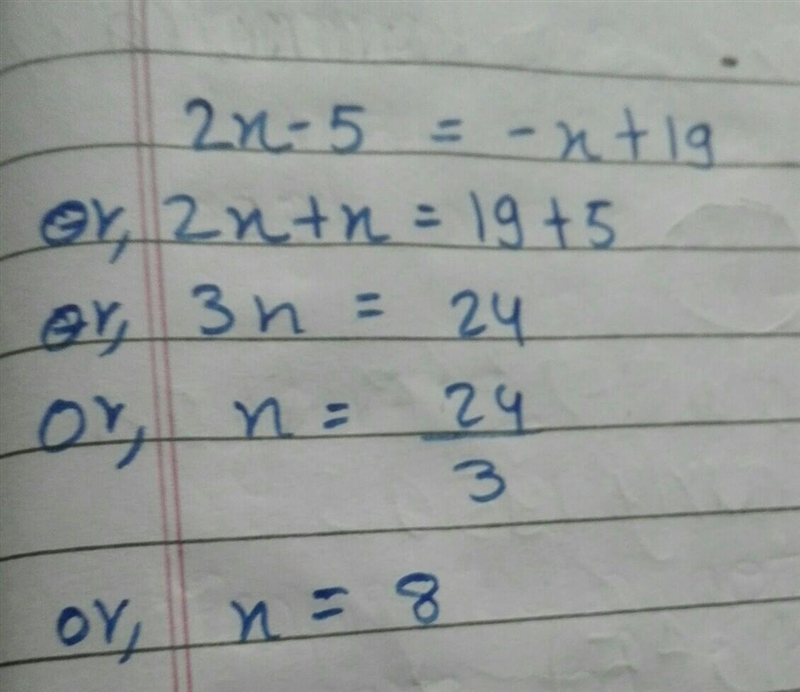 2x-5 = -x+19
or, 2x+x = 19+5
or, 3x = 24
or, x = 24/3
or, x = 8